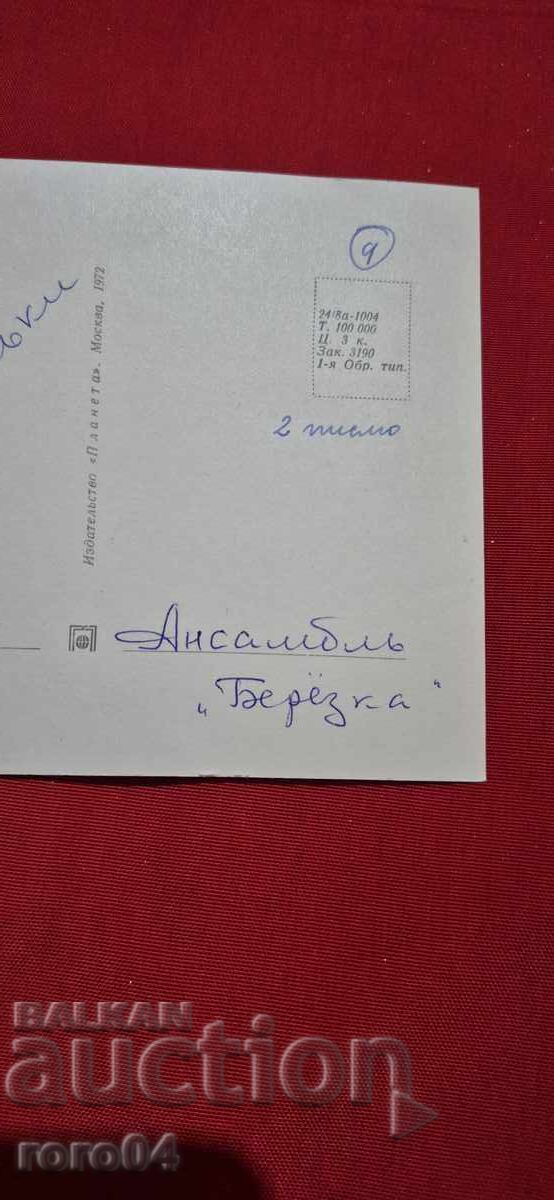 9
24/8а-1004
Т. 100 000
Ц. 3 к.
Зак. 3190
1-я Обр. тип.
2 письмо
Издательство «Планета». Москва, 1972
Ансамбль
„Берёзка"
BALKAN
auction
roro04